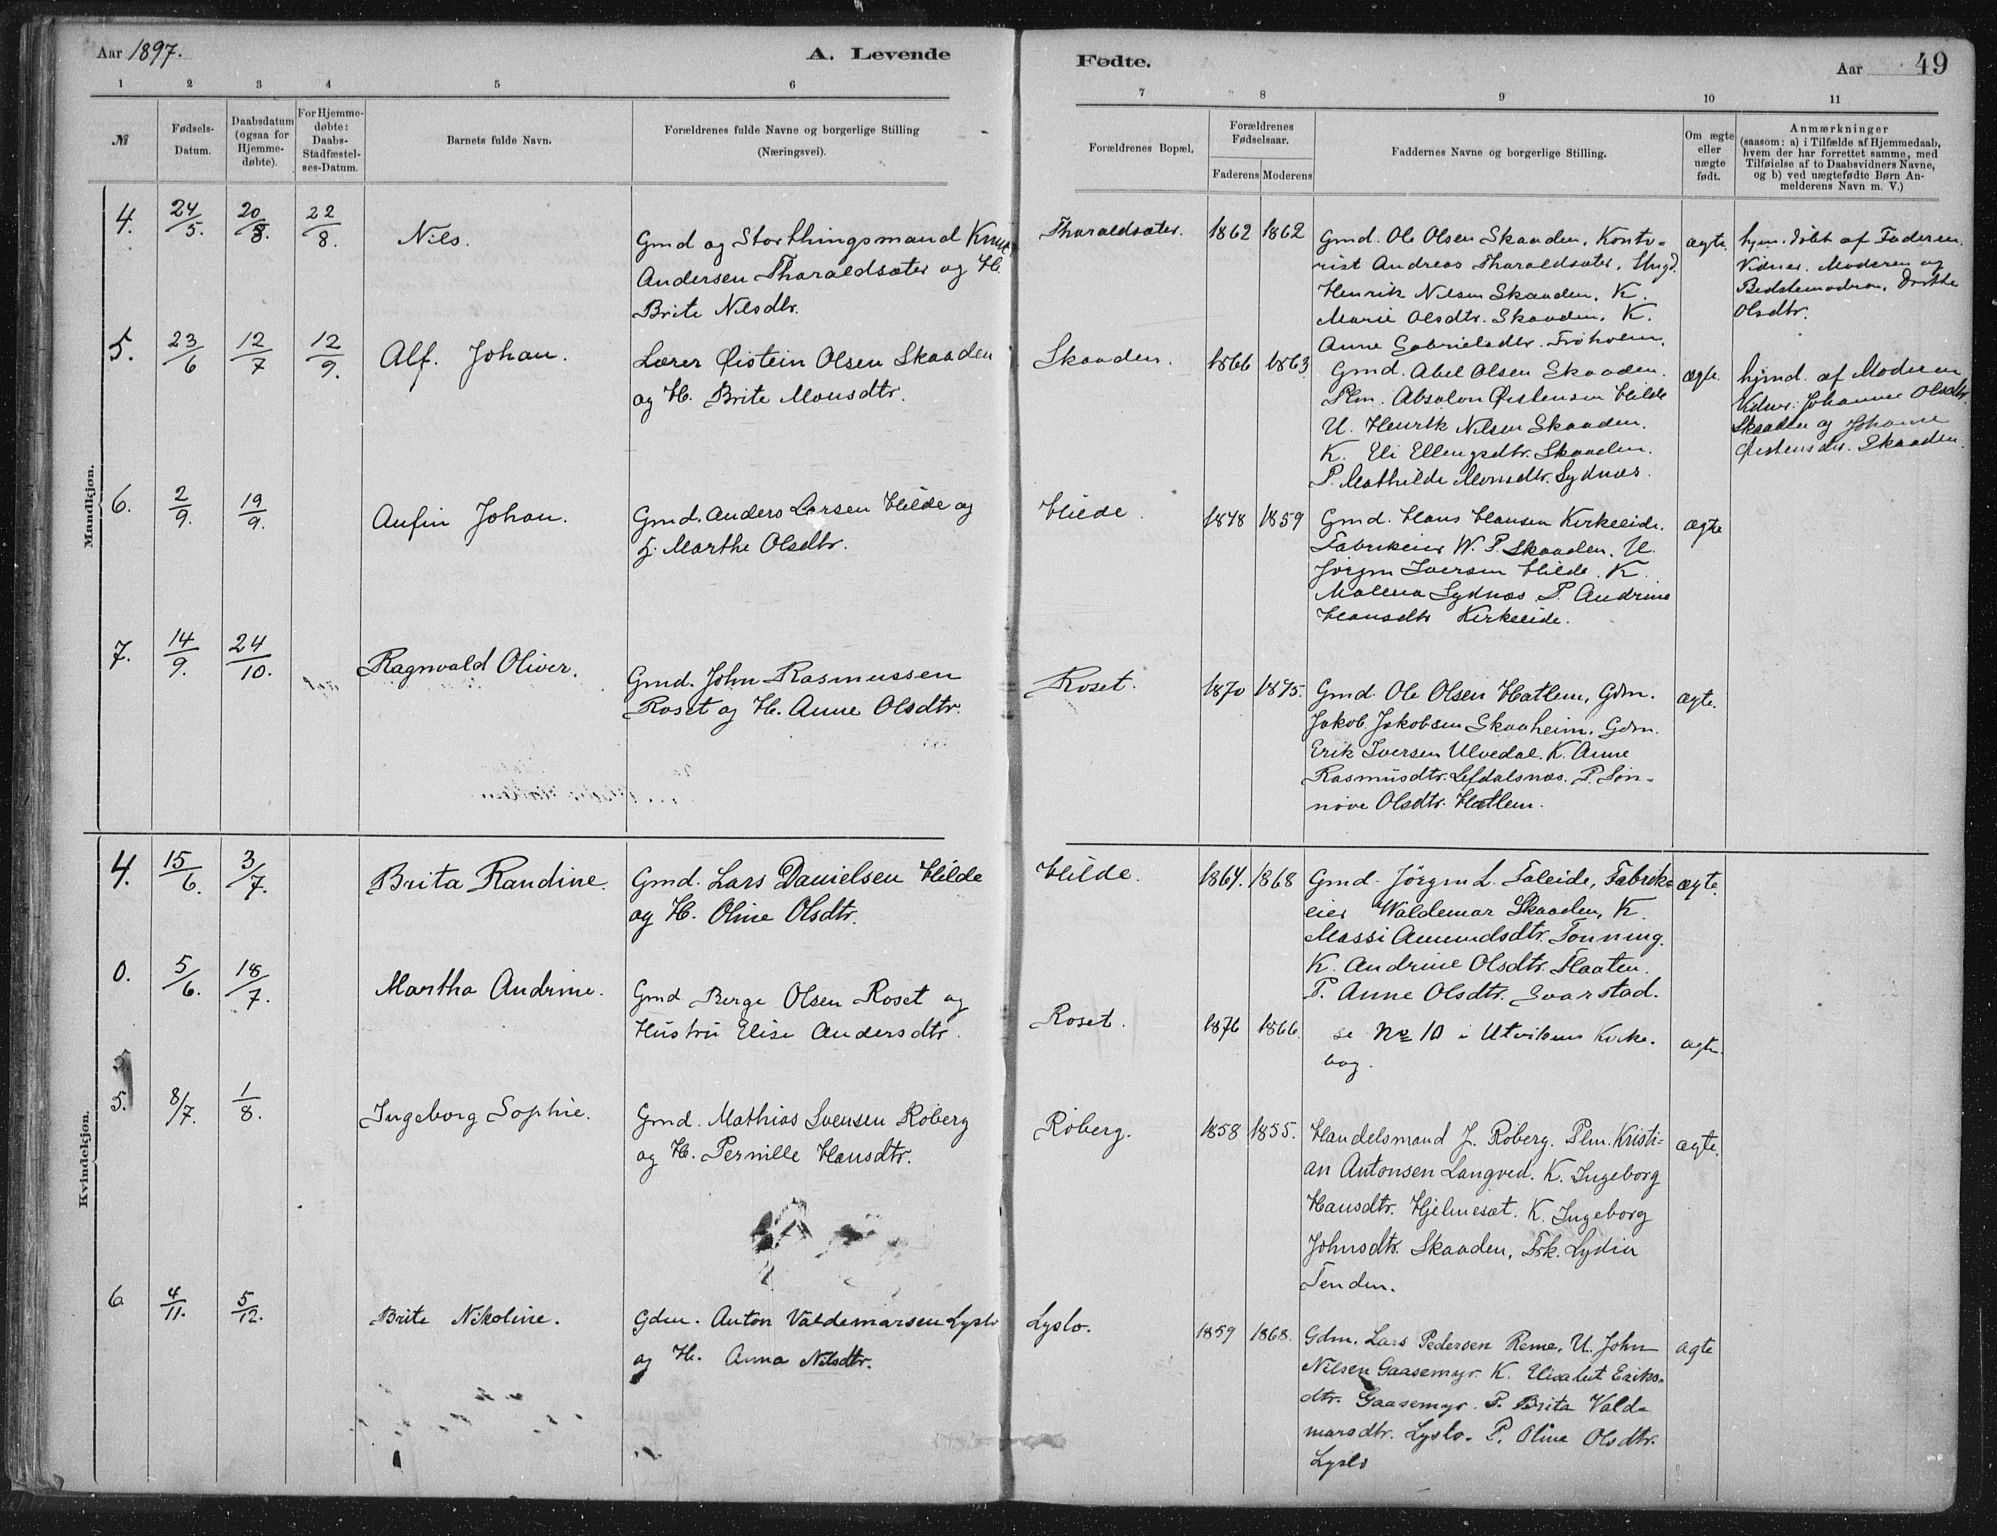 Aar 1897.
A. Levende
Fødte.
Aar
49
1 2 3 4 5 6
7 8 9 10 11
№
Fødsels-
Datum.
Daabsdatum
(ogsaa for
Hjemme-
døbte).
For Hjemme-
døbte:
Daabs-
Stadfæstel-
ses-Datum.
Barnets fulde Navn.
Forældrenes fulde Navne og borgerlige Stilling
(Næringsvei).
Forældrenes Bopæl,
Forældrenes
Fødselsaar.
Faderens Moderens
Faddernes Navne og borgerlige Stilling.
Om ægte
eller
uægte
født.
Anmærkninger
(saasom: a) i Tilfælde af Hjemmedaab,
hvem der har forrettet samme, med
Tilføielse af to Daabsvidners Navne,
og b) ved uægtefødte Børn An-
melderens Navn m. V.)
Mandkjøn.
4. 24/5. 20/8. 22/8. Nils.
Gmd og Storthingsmand Knut
Andersen Tharaldsæter og H.
Brite Nilsdtr.
Tharaldsæter. 1862 1862
Gmd. Ole Olsen Skaaden, Konto-
rist Andreas Tharaldsæter, Ungd.
Henrik Nilsen Skaaden, K.
Marie Olsdtr. Skaaden, K.
Anne Gabrielsdtr. Frøholm.
ægte.
hjem. døbt af Faderen.
Vidner. Moderen og
Bedstemoderen, Dorthe
Olsdtr.
5. 23/6 12/7 12/9. Alf. Johan.
Lærer Øistein Olsen Skaaden
og H. Brite Monsdtr.
Skaaden. 1866 1863
Gmd. Abel Olsen Skaaden.
Plm. Absalon Øistensen Hilde
U. Henrik Nilsen Skaaden.
K. Eli Ellingsdtr. Skaaden.
P. Mathilde Monsdtr. Sydnæs.
ægte.
hjmd. af Moderen
Vidner: Johanne Olsdtr.
Skaaden og Johanne
Øistensdtr. Skaaden.
6. 2/9. 19/9. Anfin Johan.
Gmd. Anders Larsen Hilde og
H. Marthe Olsdtr.
Hilde. 1848 1859
Gmd. Hans Hansen Kirkeeide.
Fabrikeier W. P. Skaaden. U.
Jørgen Iversen Hilde. K.
Malena Sydnæs P. Andrine
Hansdtr Kirkeeide.
ægte
7. 14/9. 24/10. Ragnvald Oliver.
Gmd. John Rasmussen
Roset og H. Anne Olsdtr.
Roset. 1870 1875.
Gmd. Ole Olsen Hatlem, Gdm.
Jakob Jakobsen Skaaheim. Gdm.
Erik Iversen Ulvedal. K. Anne
Rasmusdtr. Lefdalsnæs. P. Søn-
nøve Olsdtr. Hatlem.
ægte.
Kvindekjøn.
4. 15/6. 3/7. Brita Randine.
Gmd. Lars Danielsen Hilde
og H. Oline Olsdtr.
Hilde. 1864. 1868
Gmd. Jörgen L. Faleide, Fabrik-
eier Waldemar Skaaden, K.
Massi Amundsdtr. Tonning.
K. Andrine Olsdtr. Flaaten.
P. Anne Olsdtr. Svarstad.
ægte.
0. 5/6. 18/7. Martha Andrine.
Gmd. Berge Olsen Roset og
Hustru Elise Andersdtr.
Roset. 1876 1866.
se № 10 i Utvikens Kirke-
bog.
ægte.
5. 8/7. 1/8. Ingeborg Sophie.
Gmd. Mathias Svensen Røberg
og H. Pernille Hansdtr.
Røberg. 1858 1855.
Handelsmand J. Roberg. Plm. Kristi-
an Antonsen Langved. K. Ingeborg
Hansdtr. Hjelmesæt. K. Ingeborg
Johnsdtr. Skaaden, Frk. Lydia
Tenden.
ægte.
6. 4/11. 5/12. Brite Nikoline.
Gdm. Anton Valdemarsen Lyslo
og H. Anna Nilsdtr.
Lyslo. 1859 1868.
Gdm. Lars Pedersen Reme, U. John
Nilsen Gaasemyr K. Elisabet Eriks-
dtr. Gaasemyr. P. Brita Valde
marsdtr. Lyslo. P. Oline Olsdtr.
Lyslo
ægte